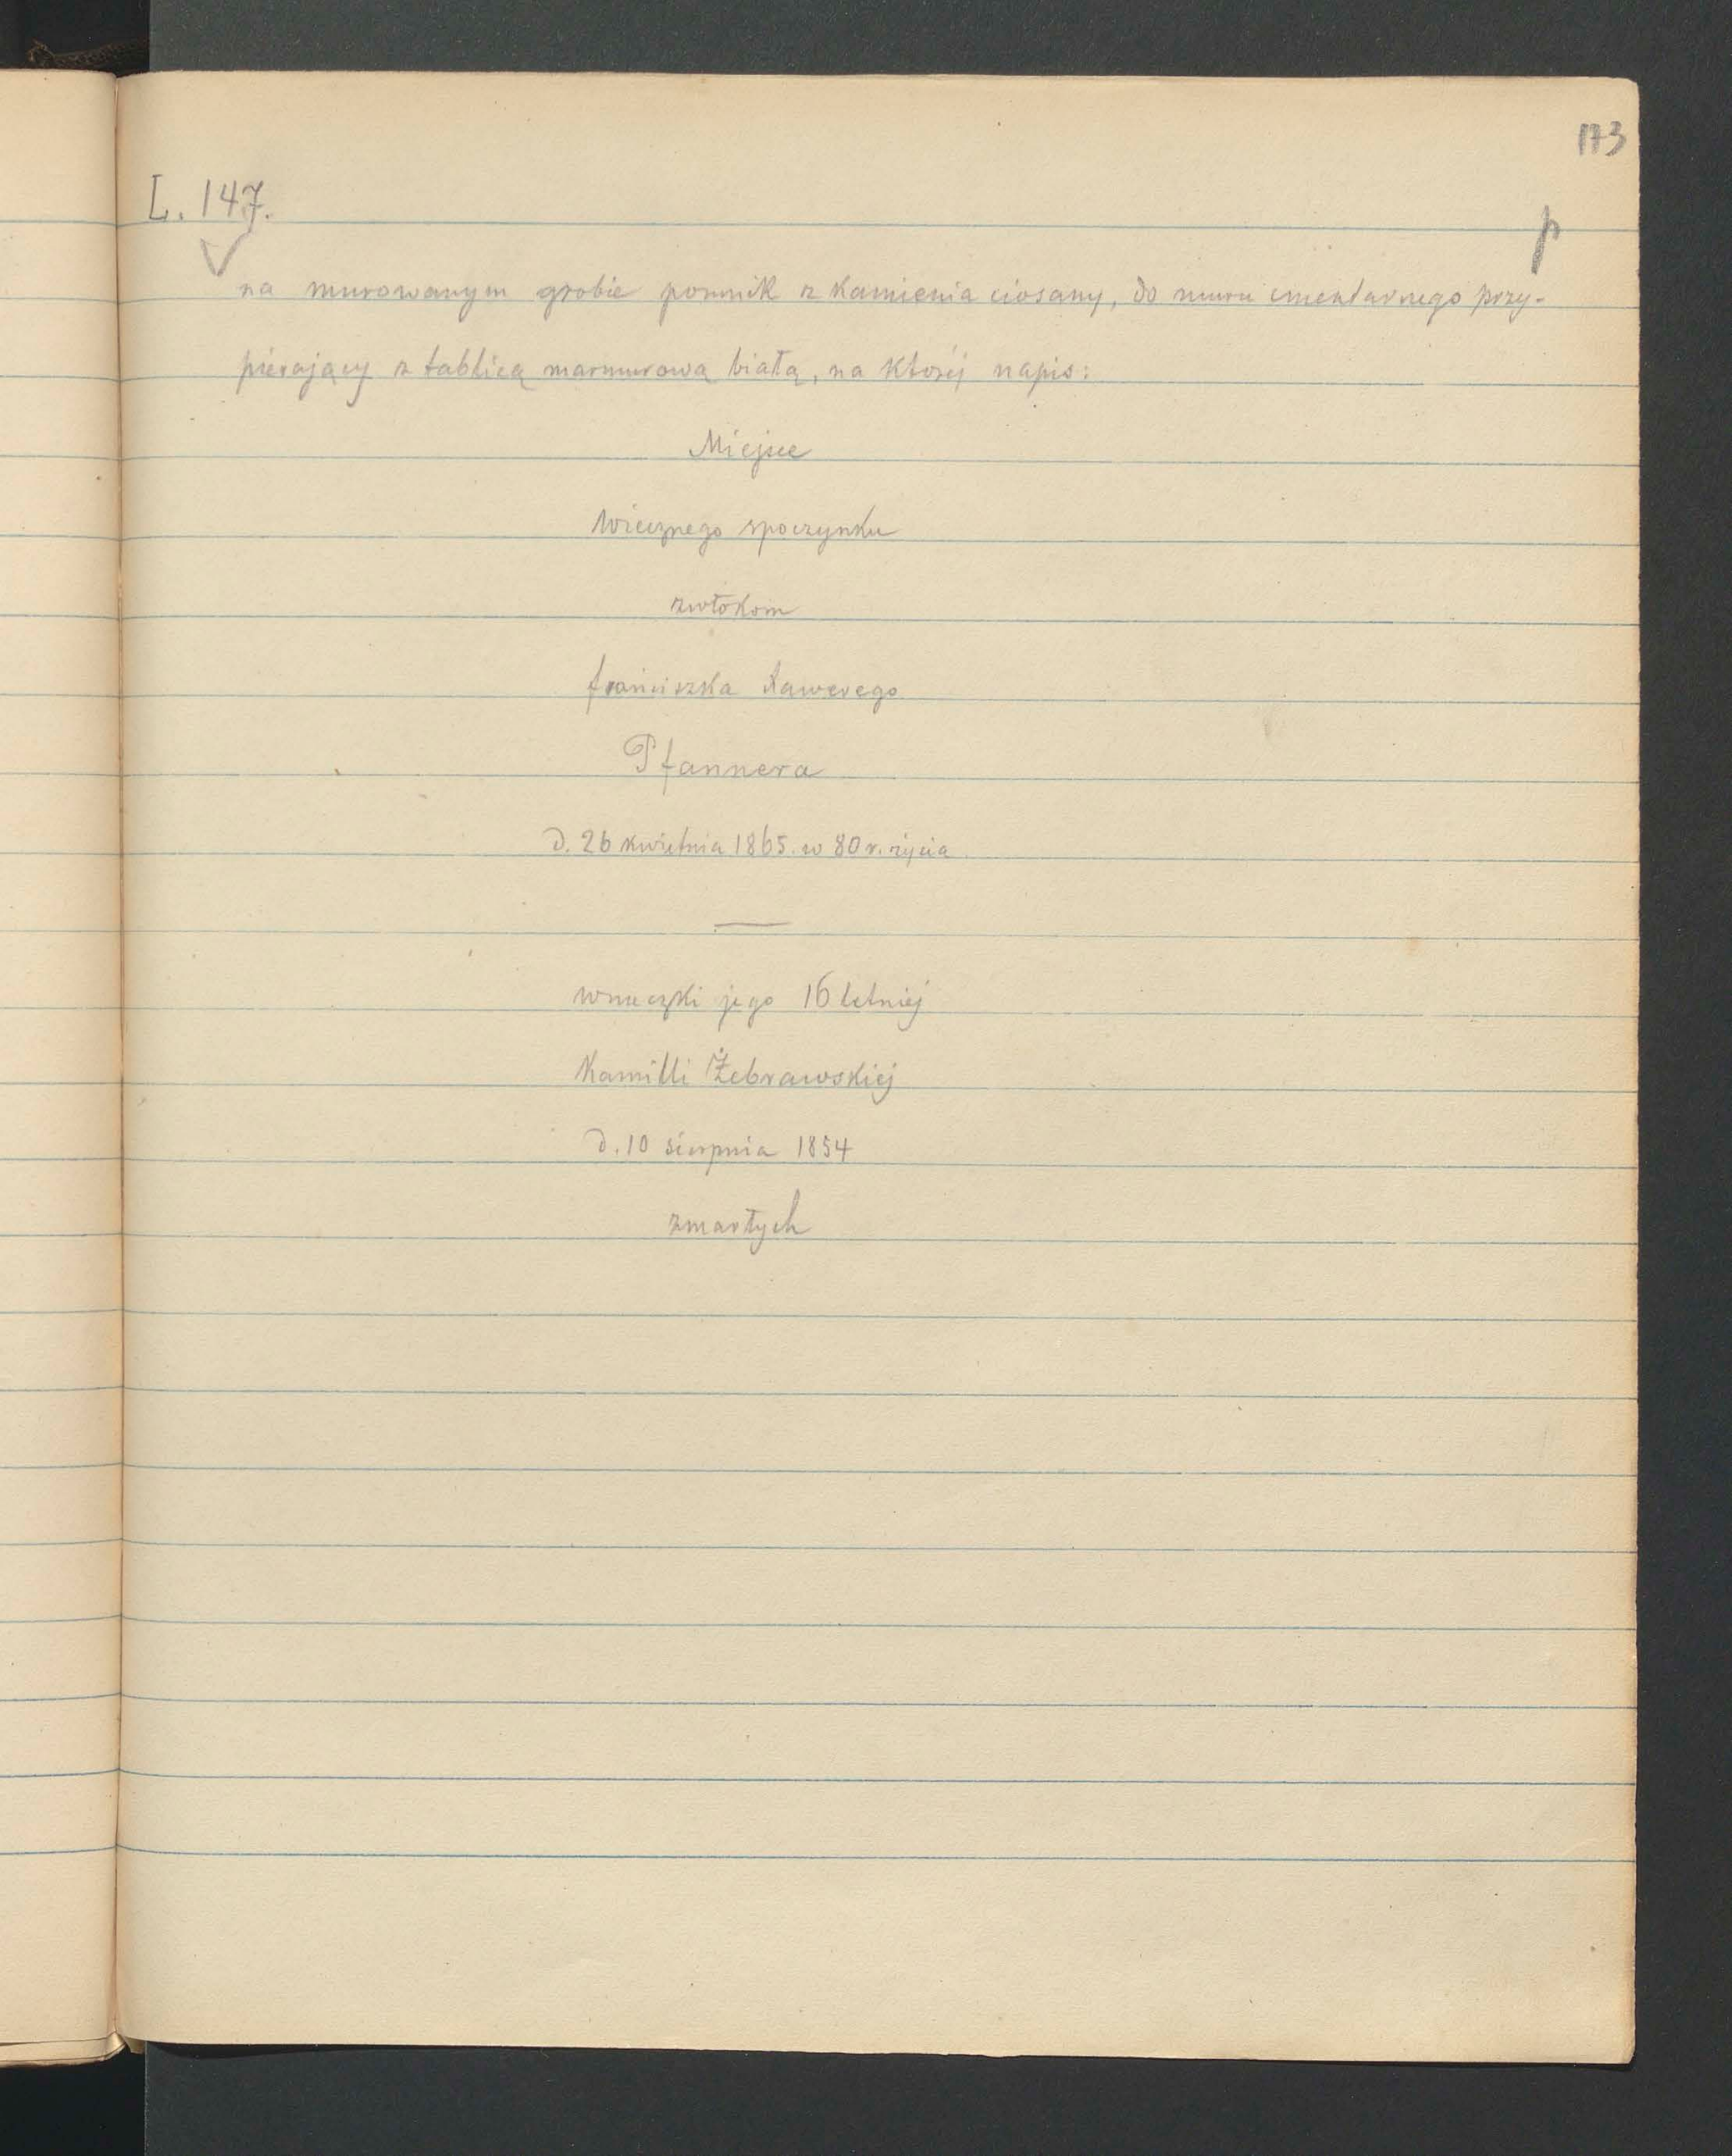 173
L. 147.
p
na murowanym grobie pomnik z kamienia ciosany, do muru cmentarnego przy-
pierający z tablicą marmurową białą, na której napis:
Miejsce
wiecznego spoczynku
zwłokom
franciszka Xawerego
Pfannera
d. 26 kwietnia 1865. w 80 r. życia
wnuczki jego 16 letniej
Kamilli Żebrawskiej
d. 10 sierpnia 1854
zmarłych